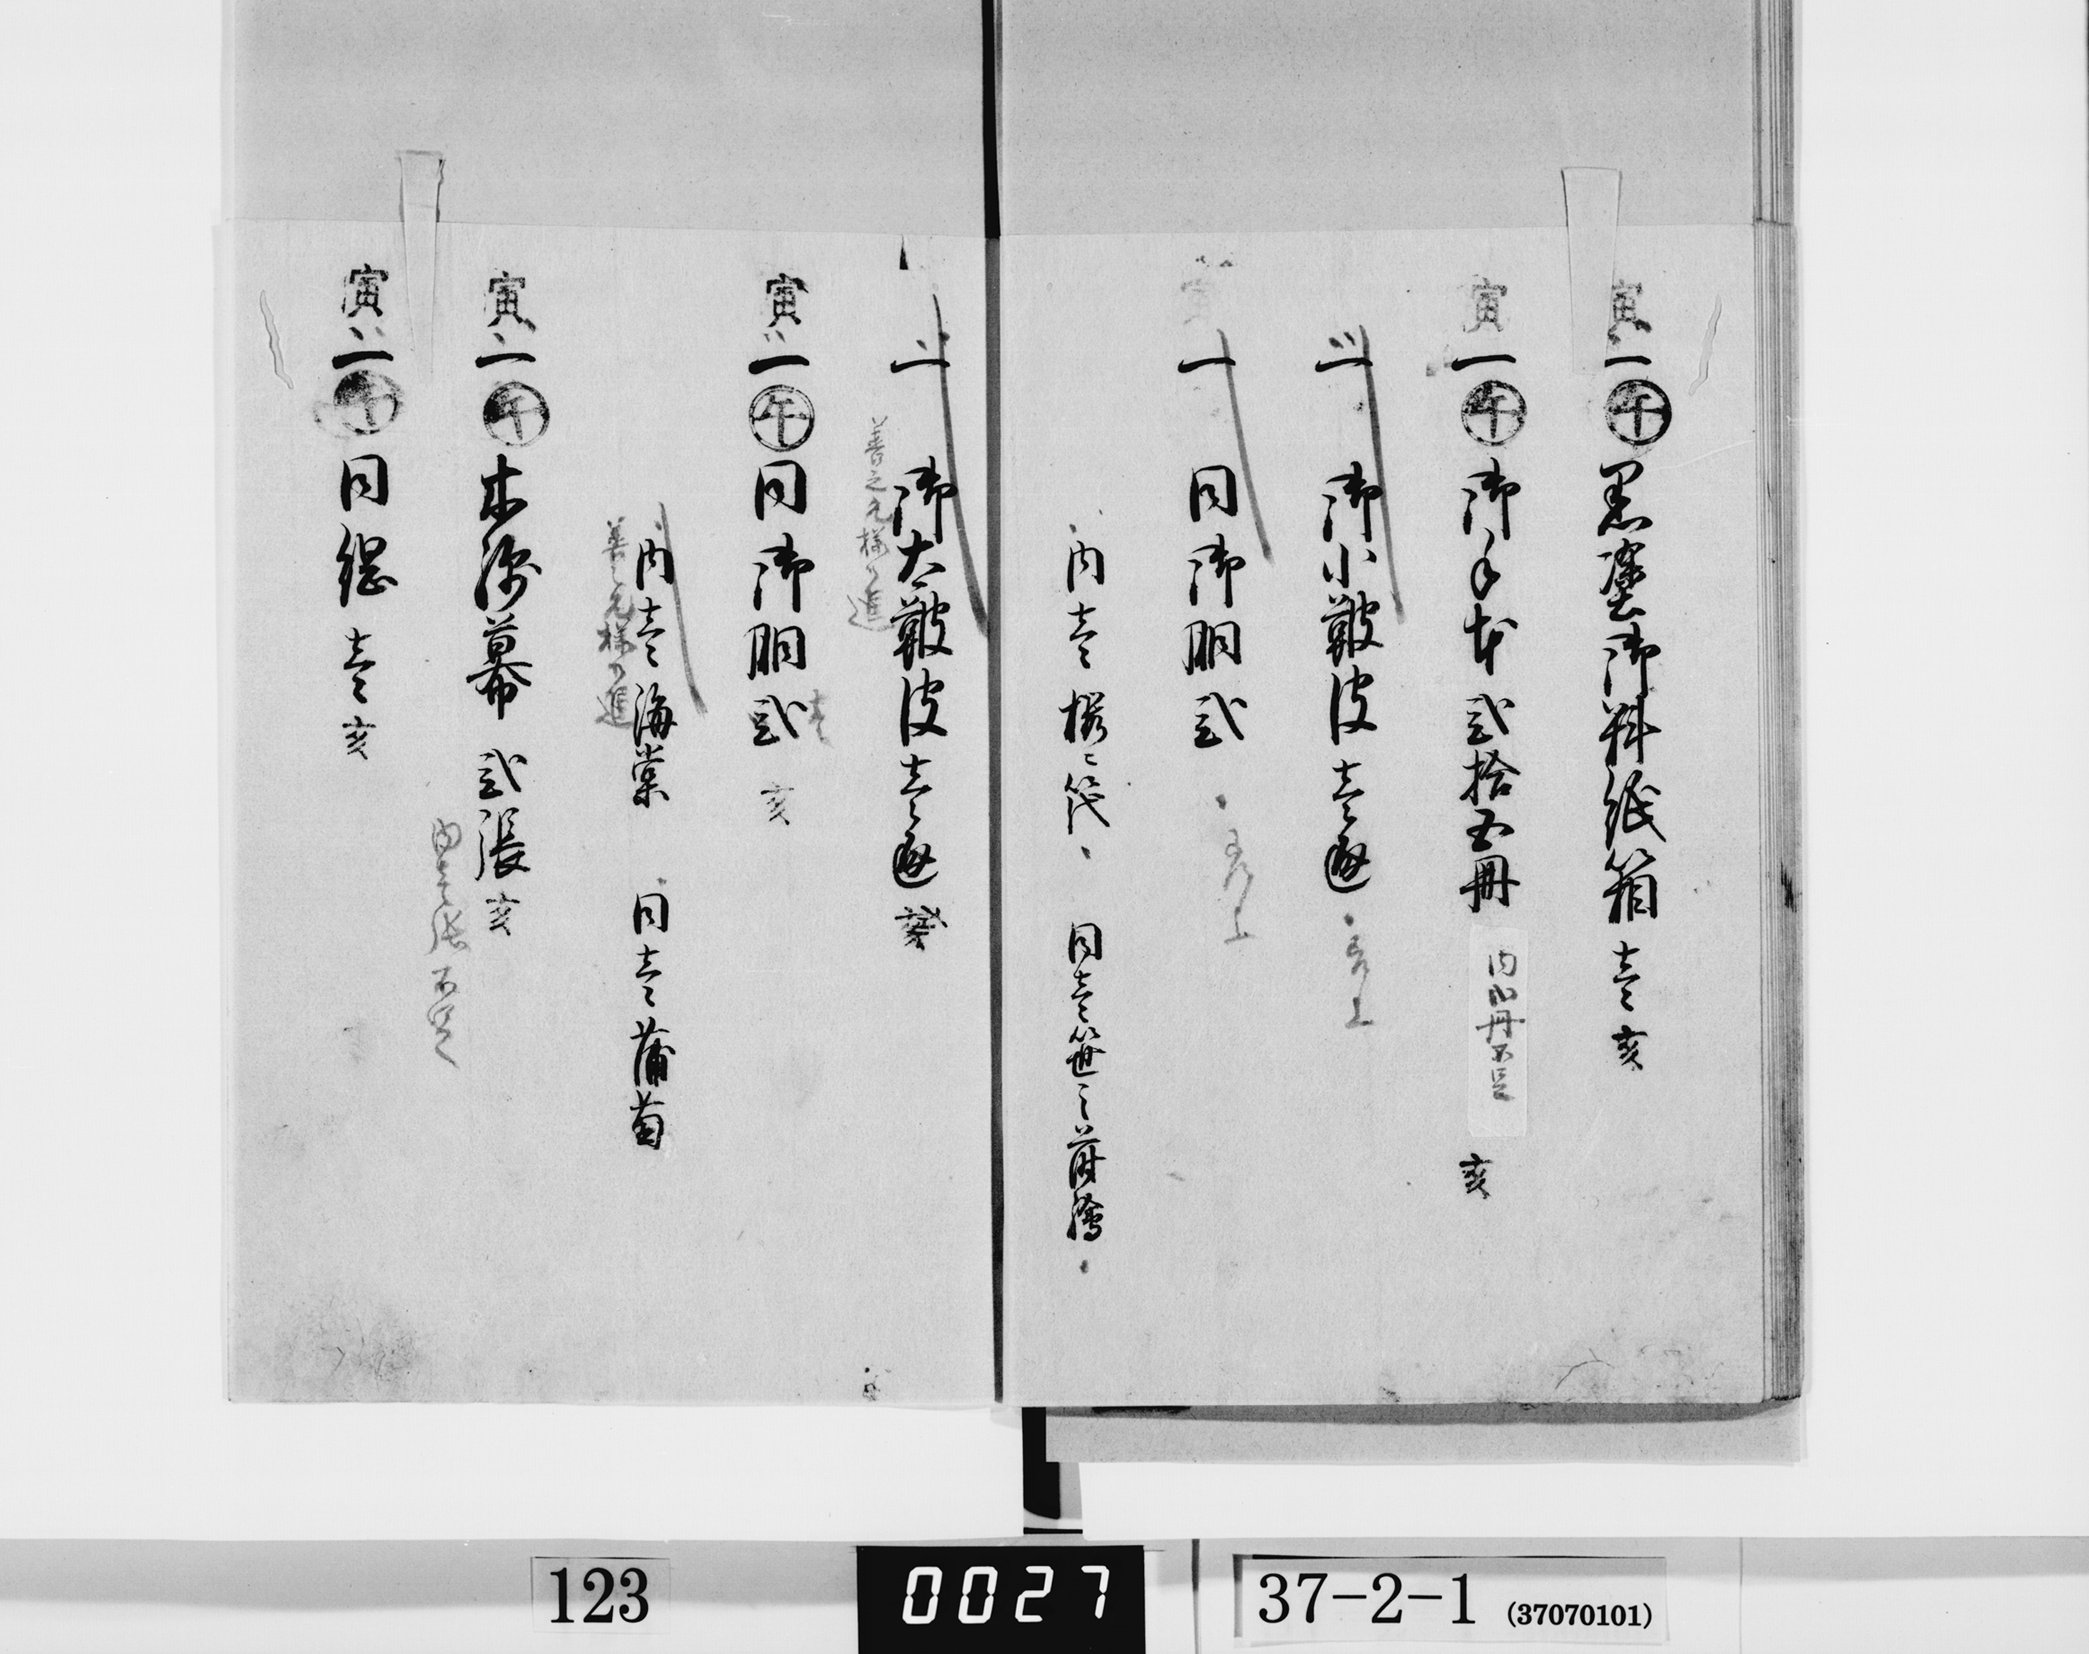 寅一午黒塗御料紙箱壱亥
寅一午御手本弐拾五冊
内四冊不足
亥
一御小鞁皮壱通
寅一同御胴弐
内壱桜ニ筏
同壱笹ニ蒔絵
一御大鞁皮壱通
善之丞様へ進
寅一午同御胴弐亥
壱
内壱海棠
同壱蒲萄
善之丞様へ進
寅一午木綿幕弐張亥
内壱張不足
寅一午同綱壱亥
123
0027
37-2-1 (37070101)